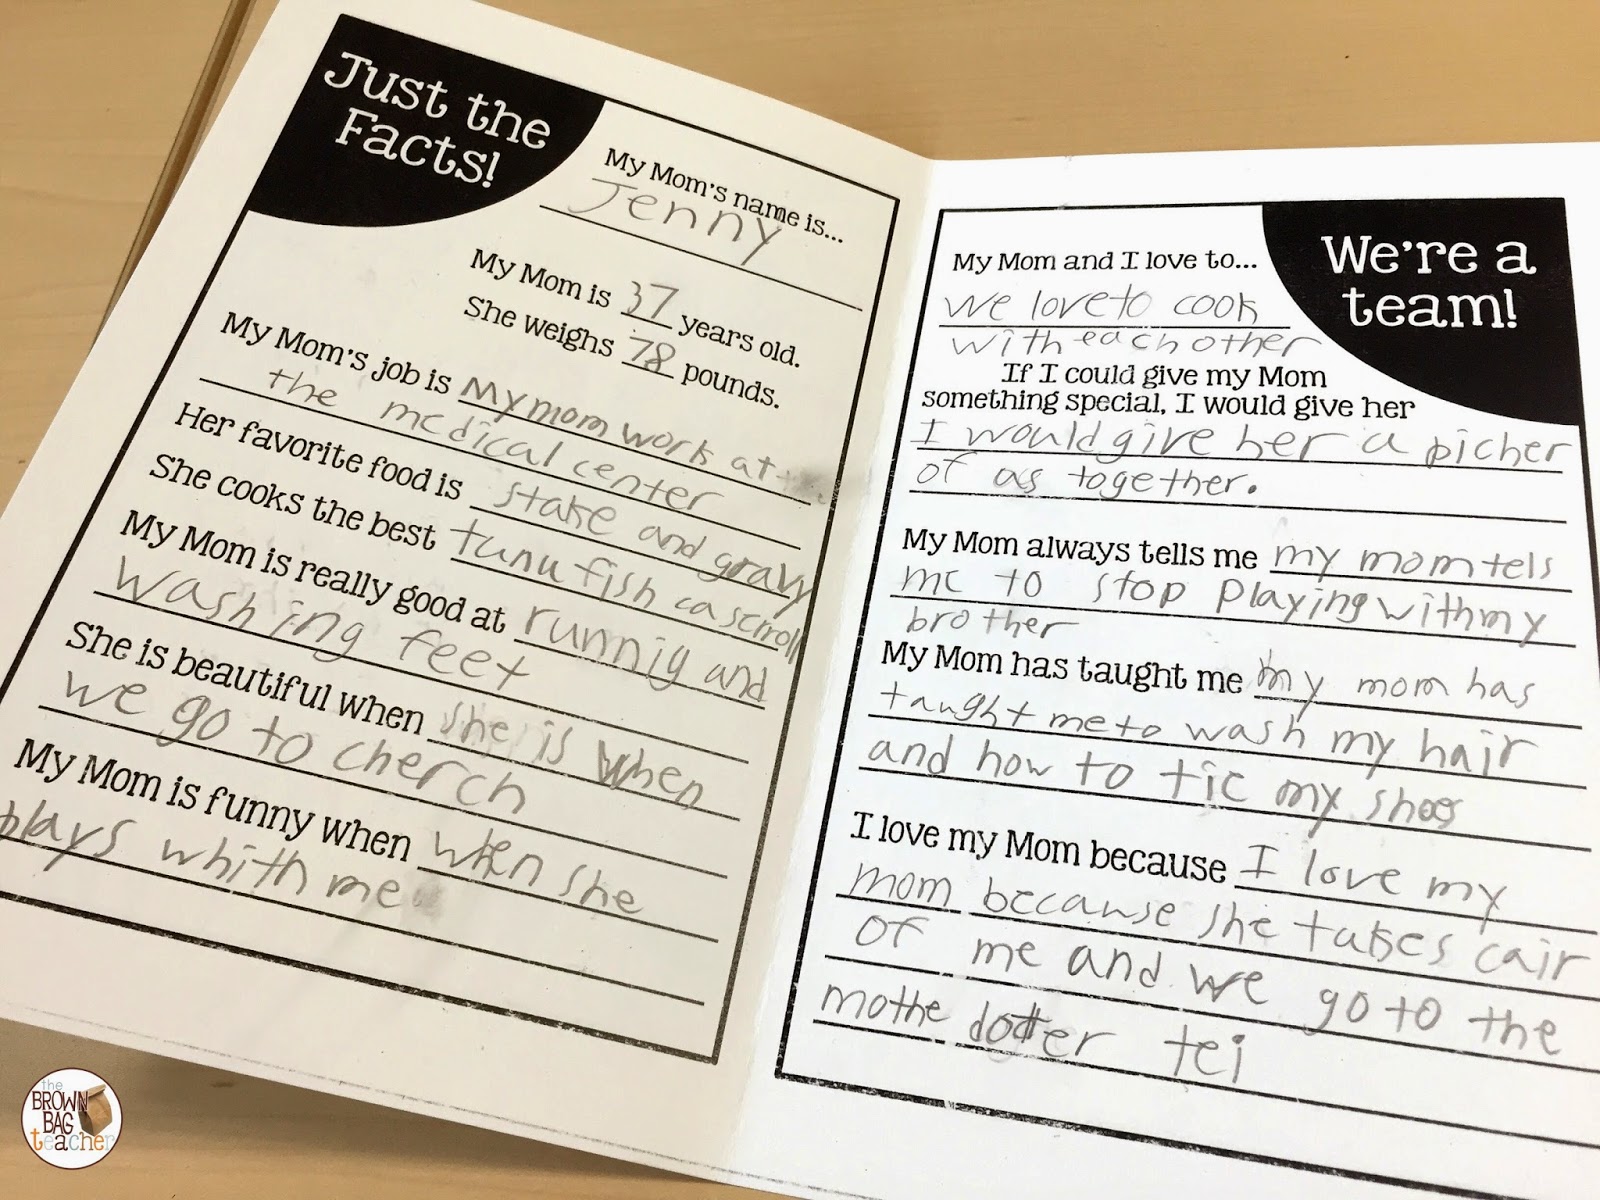 Just the
Facts!
My Mom's name is...
Jenny
My Mom is 37 years old.
She weighs 78 pounds.
My Mom's job is My mom work at
the medical center
Her favorite food is stake and gravy
She cooks the best tunu fish cascroll
My Mom is really good at runnig and
washing feet
She is beautiful when she is when
we go to cherch
My Mom is funny when when she
plays whith me
We're a
team!
My Mom and I love to...
we love to cook
with each other
If I could give my Mom
something special, I would give her
I would give her a picher
of as together.
My Mom always tells me my mom tels
me to stop playing with my
brother
My Mom has taught me my mom has
taught me to wash my hair
and how to tie my shoes
I love my Mom because I love my
mom because she takes cair
of me and we go to the
mothe dotter tei
the
BROWN
BAG
teacher